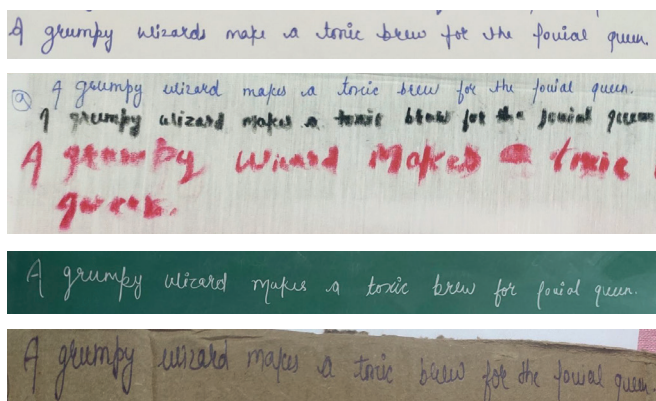 A grumpy wizards make a tonic brew for the jovial queen.
a A grumpy wizard makes a toxic brew for the jovial queen.
A grumpy wizard makes a toxic brew for the jovial queen
A grumpy wizard makes a toxic
queen.
A grumpy wizard makes a toxic brew for jovial queen.
A grumpy wizard makes a toxic brew for the jovial queen.